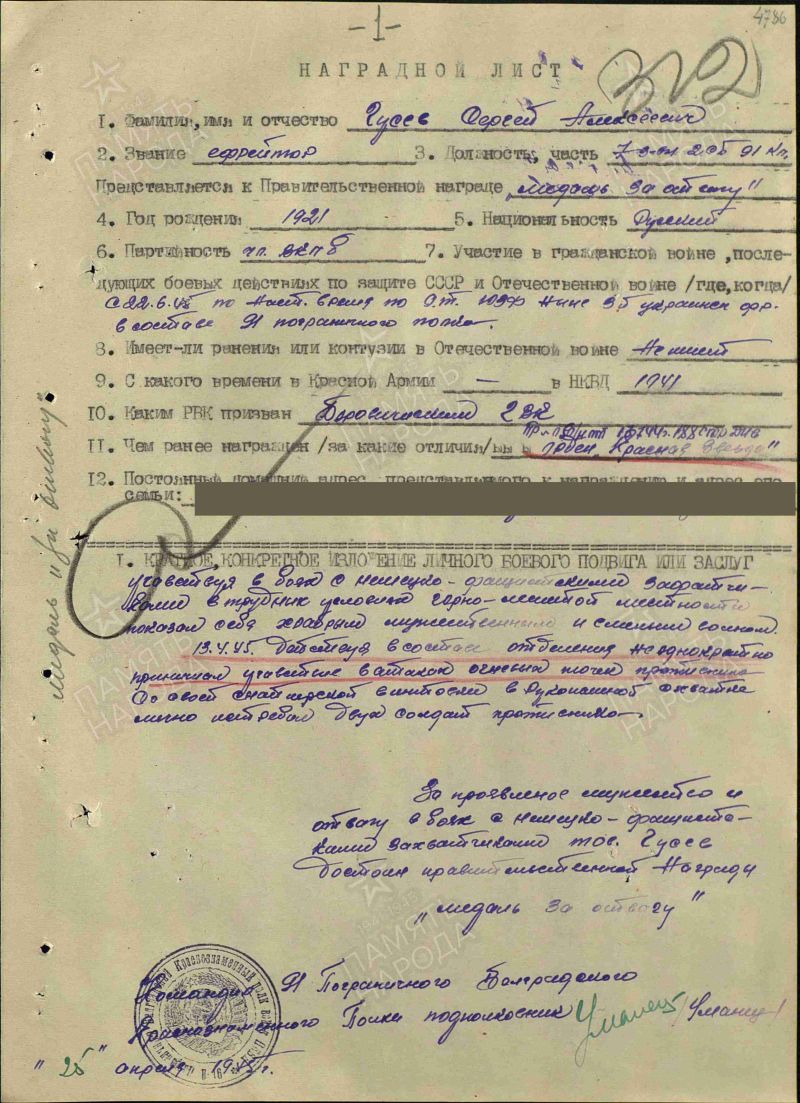 4786
-1-
НАГРАДНОЙ ЛИСТ
1. Фамилия, имя и отчество Гусев Сергей Алексеевич
2. Звание ефрейтор 3. Должность, часть 91
Представляется к Правительственной награде „Медаль За отвагу"
4. Год рождения 1921 5. Национальность Русский
6. Партийность чл. ВКПб 7. Участие в гражданской войне, после-
дующих боевых действиях по защите СССР и Отечественной войне /где, когда/
с 22.6. по наст. время 3 украинск фр.
в составе 91 пограничного полка.
8. Имеет-ли ранения или контузии в Отечественной войне Не имеет
9. С какого времени в Красной Армии — в НКВД 1941
10. Каким РВК призван Боровическим РВК
11. Чем ранее награжден /за какие отличия/ орден „Красная Звезда"
12. Постоянный домашний адрес представляемого к награждению и адрес его
семьи:
I. КРАТКОЕ, КОНКРЕТНОЕ ИЗЛОЖЕНИЕ ЛИЧНОГО БОЕВОГО ПОДВИГА ИЛИ ЗАСЛУГ
участвуя в боях с немецко-фашистскими захватчи-
ками в трудных условиях горно-лесистой местности
показал себя храбрым мужественным и смелым воином.
13.4.45. Действуя в составе отделения неоднократно
принимал участие в атаках огневых точек противника
Со своей снайперской винтовки в рукопашной схватке
лично истребил двух солдат противника.
За проявленое мужество и
отвагу в боях с немецко-фашистс-
кими захватчиками тов. Гусев
Достоин правительственной Награды
„медаль За отвагу"
Командир 91 Пограничного Болградского
Краснознаменного Полка подполковник Уманец /Уманец/
"25" апреля 1945 г.
медаль „За отвагу"
ПАМЯТЬ НАРОДА